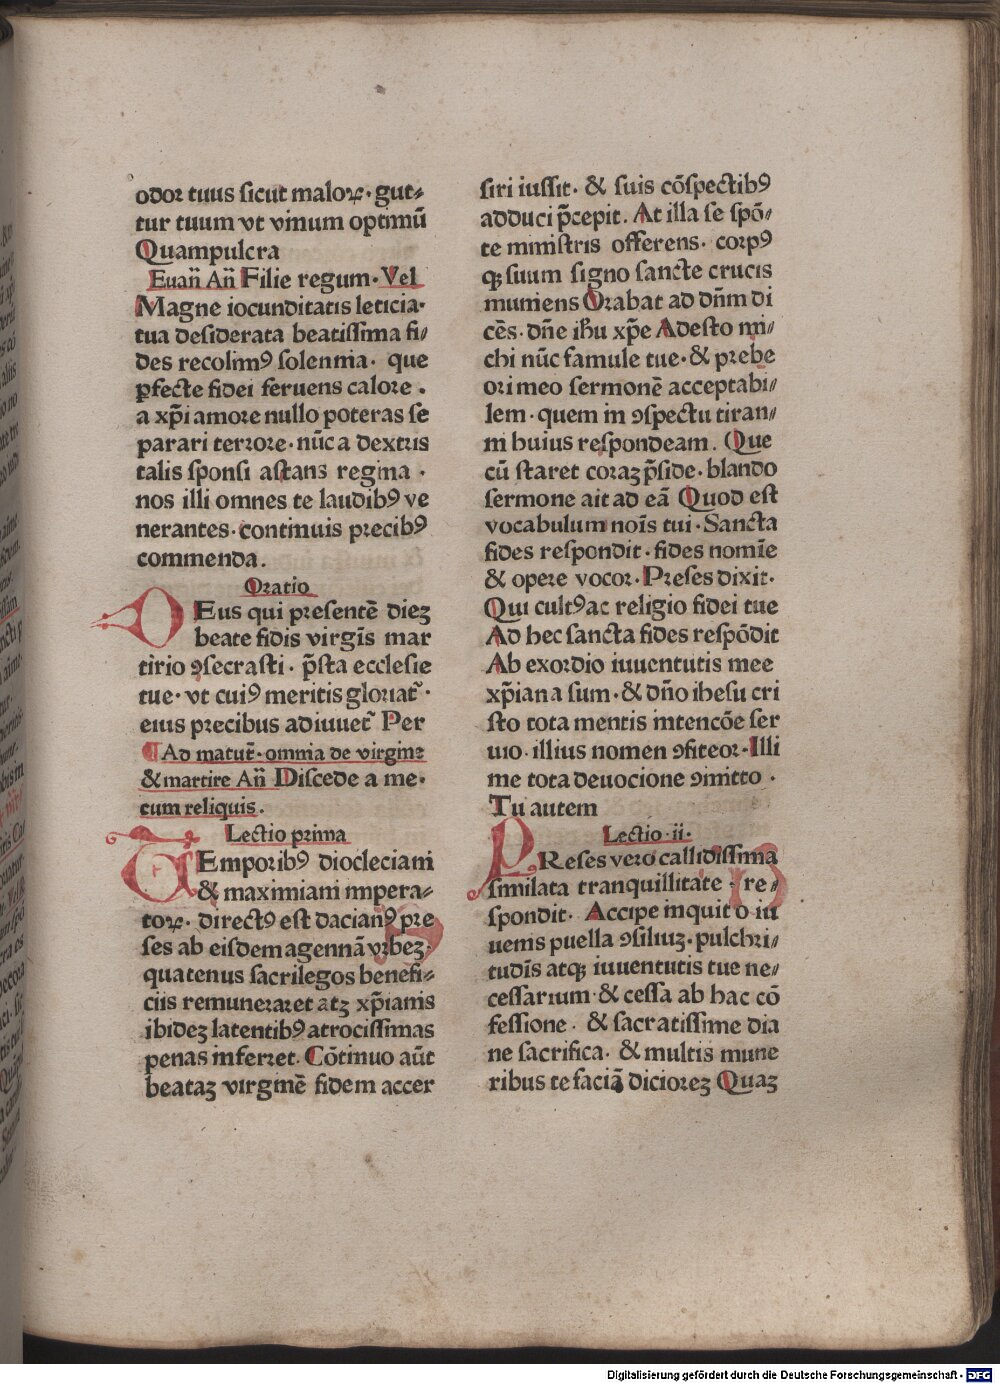 odoꝛ tuus sicut maloꝝ· gut⸗
tur tuum vt vinum optimū
Quampulcra
Euan̄ An̄ Filie regum· Vel
Magne iocunditatis leticia·
tua desiderata beatissima fi⸗
des recolimꝰ solennia· que
ꝑfecte fidei feruens calore .
a xp̄i amore nullo poteras se
parari terrore· nūc a dextris
talis sponsi astans regina ·
nos illi omnes te laudibꝰ ve
nerantes· continuis precibꝰ
commenda.
Oratio
DEus qui presentē diez
beate fidis virgīs mar
tirio ꝯsecrasti· p̄sta ecclesie
tue· vt cuiꝰ meritis gloriat᷑·
eius precibus adiuuet᷑ Per
¶Ad matut᷑· omnia de virgine
& martire An̄ Discede a me·
cum reliquis.
Lectio prima
TEmporibꝰ diocleciani
& maximiani impera⸗
toꝝ· directꝰ est dacianꝰ pre
ses ab eisdem agennā vꝛbez·
quatenus sacrilegos benefi⸗
ciis remuneraret atz xp̄ianis
ibidez latentibꝰ atrocissimas
penas inferret. Cōtinuo aūt
beataz virginē fidem accer
siri iussit· & suis cōspectibꝰ
adduci p̄cepit. At illa se spō⸗
te ministris offerens· corpꝰ
qꝫ suum signo sancte crucis
muniens Orabat ad dn̄m di
cēs· dn̄e ih̄u xp̄e Adesto mi⸗
chi nūc famule tue· & prebe
ori meo sermonē acceptabi⸗
lem· quem in ꝯspectu tiran⸗
ni huius respondeam. Que
cū staret coraz p̄side· blando
sermone ait ad eā Quod est
vocabulum noīs tui· Sancta
fides respondit· fides nomīe
& opere vocor· Preses dixit·
Qui cultꝰ ac religio fidei tue
Ad hec sancta fides respōdit
Ab exordio iuuentutis mee
xp̄iana sum· & dn̄o ihesu cri
sto tota mentis intencōe ser
uio· illius nomen ꝯfiteor· Illi
me tota deuocione ꝯmitto ·
Tu autem
Lectio·ii·
PReses vero callidissima
similata tranquillitate · re⸗
spondit· Accipe inquit o iu
uenis puella ꝯsiliuz· pulchri⸗
tudīs atqꝫ iuuentutis tue ne⸗
cessarium· & cessa ab hac cō
fessione· & sacratissime dia
ne sacrifica· & multis mune
ribus te faciā diciorez Quaz
Digitalisierung gefördert durch die Deutsche Forschungsgemeinschaft - DFG